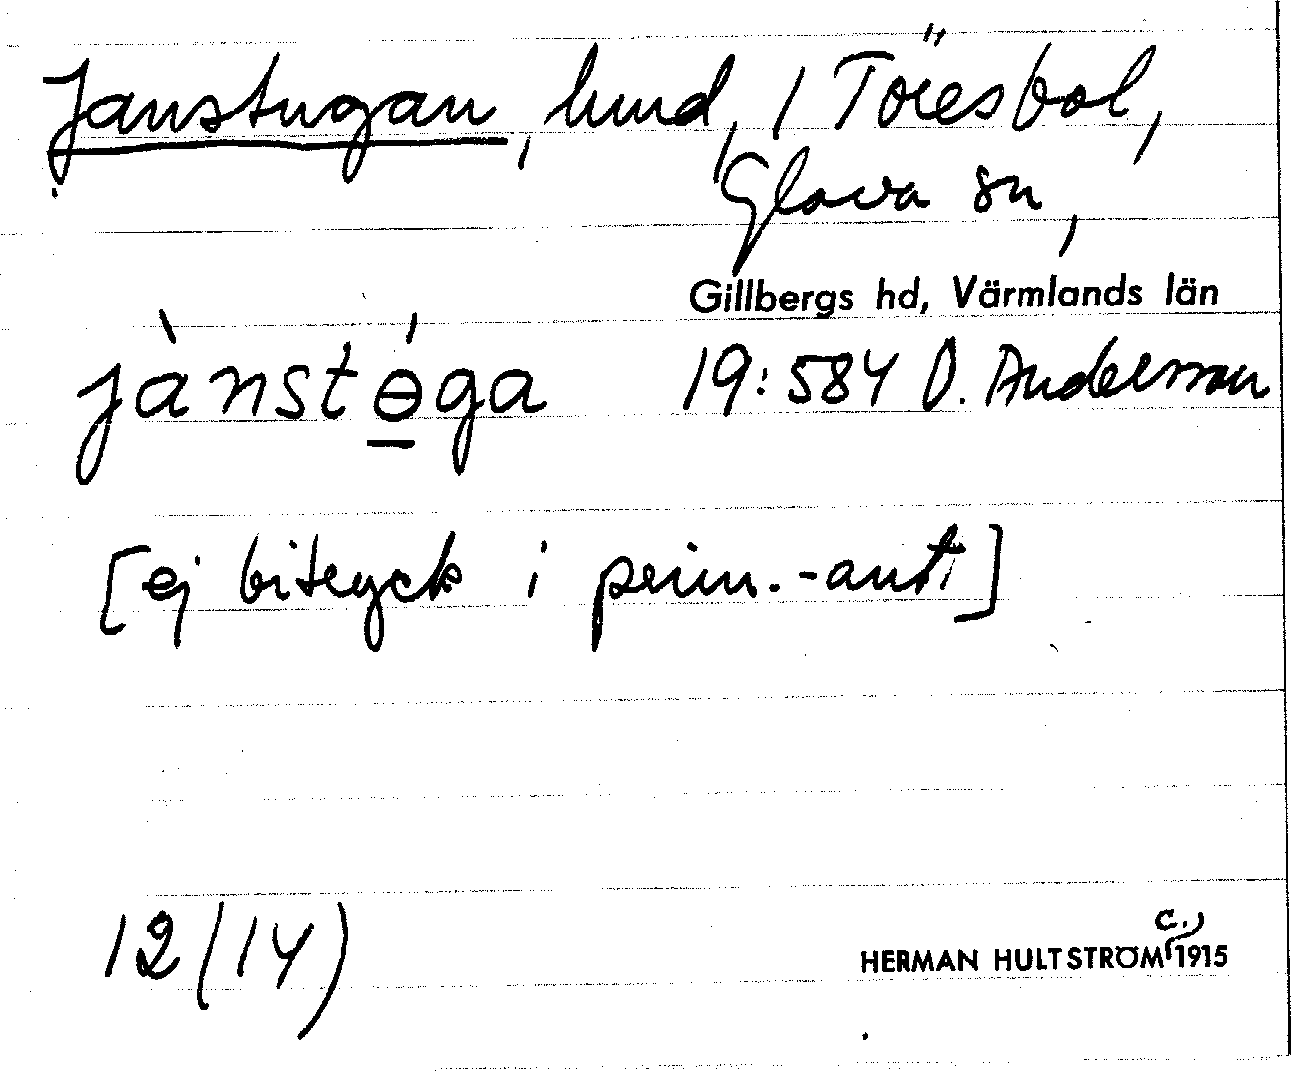 Janstugan, lund, 1 Töresbol,
Glava sn,
Gillbergs hd, Värmlands län
jànstɵ́ga 19:584 O. Andersson
[ej bitryck i prim.-ant.]
12(14)
HERMAN HULTSTRÖM c. 1915